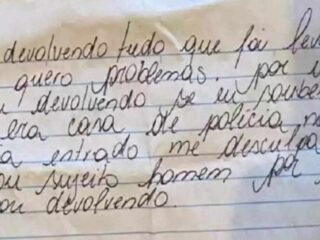 devolvendo tudo que foi lev
quero problemas. por
devolvendo, se eu soube
era casa de policia n
entrado me desculpa
ou sujeito homem por
ou devolvendo.